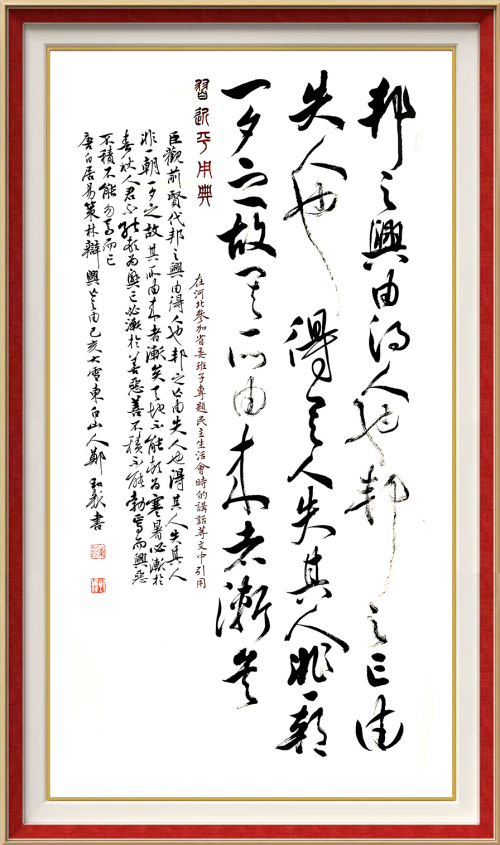 邦之興由得人也邦之亡由
失人也得其人失其人非一朝
一夕之故其所由来者漸矣
習近平用典
在河北參加省委班子專題民主生活會時的講話等文中引用
臣觀前賢代邦之興由得人也邦之亡由失人也得其人失其人
非一朝一夕之故其所由来者漸矣天地不能頓為寒暑必漸於
春秋人君不能頓為興亡必漸於善惡善不積不能勃焉而興惡
不積不能勿焉而已
唐白居易策林辯興亡由己亥大雪東白山人鄭書